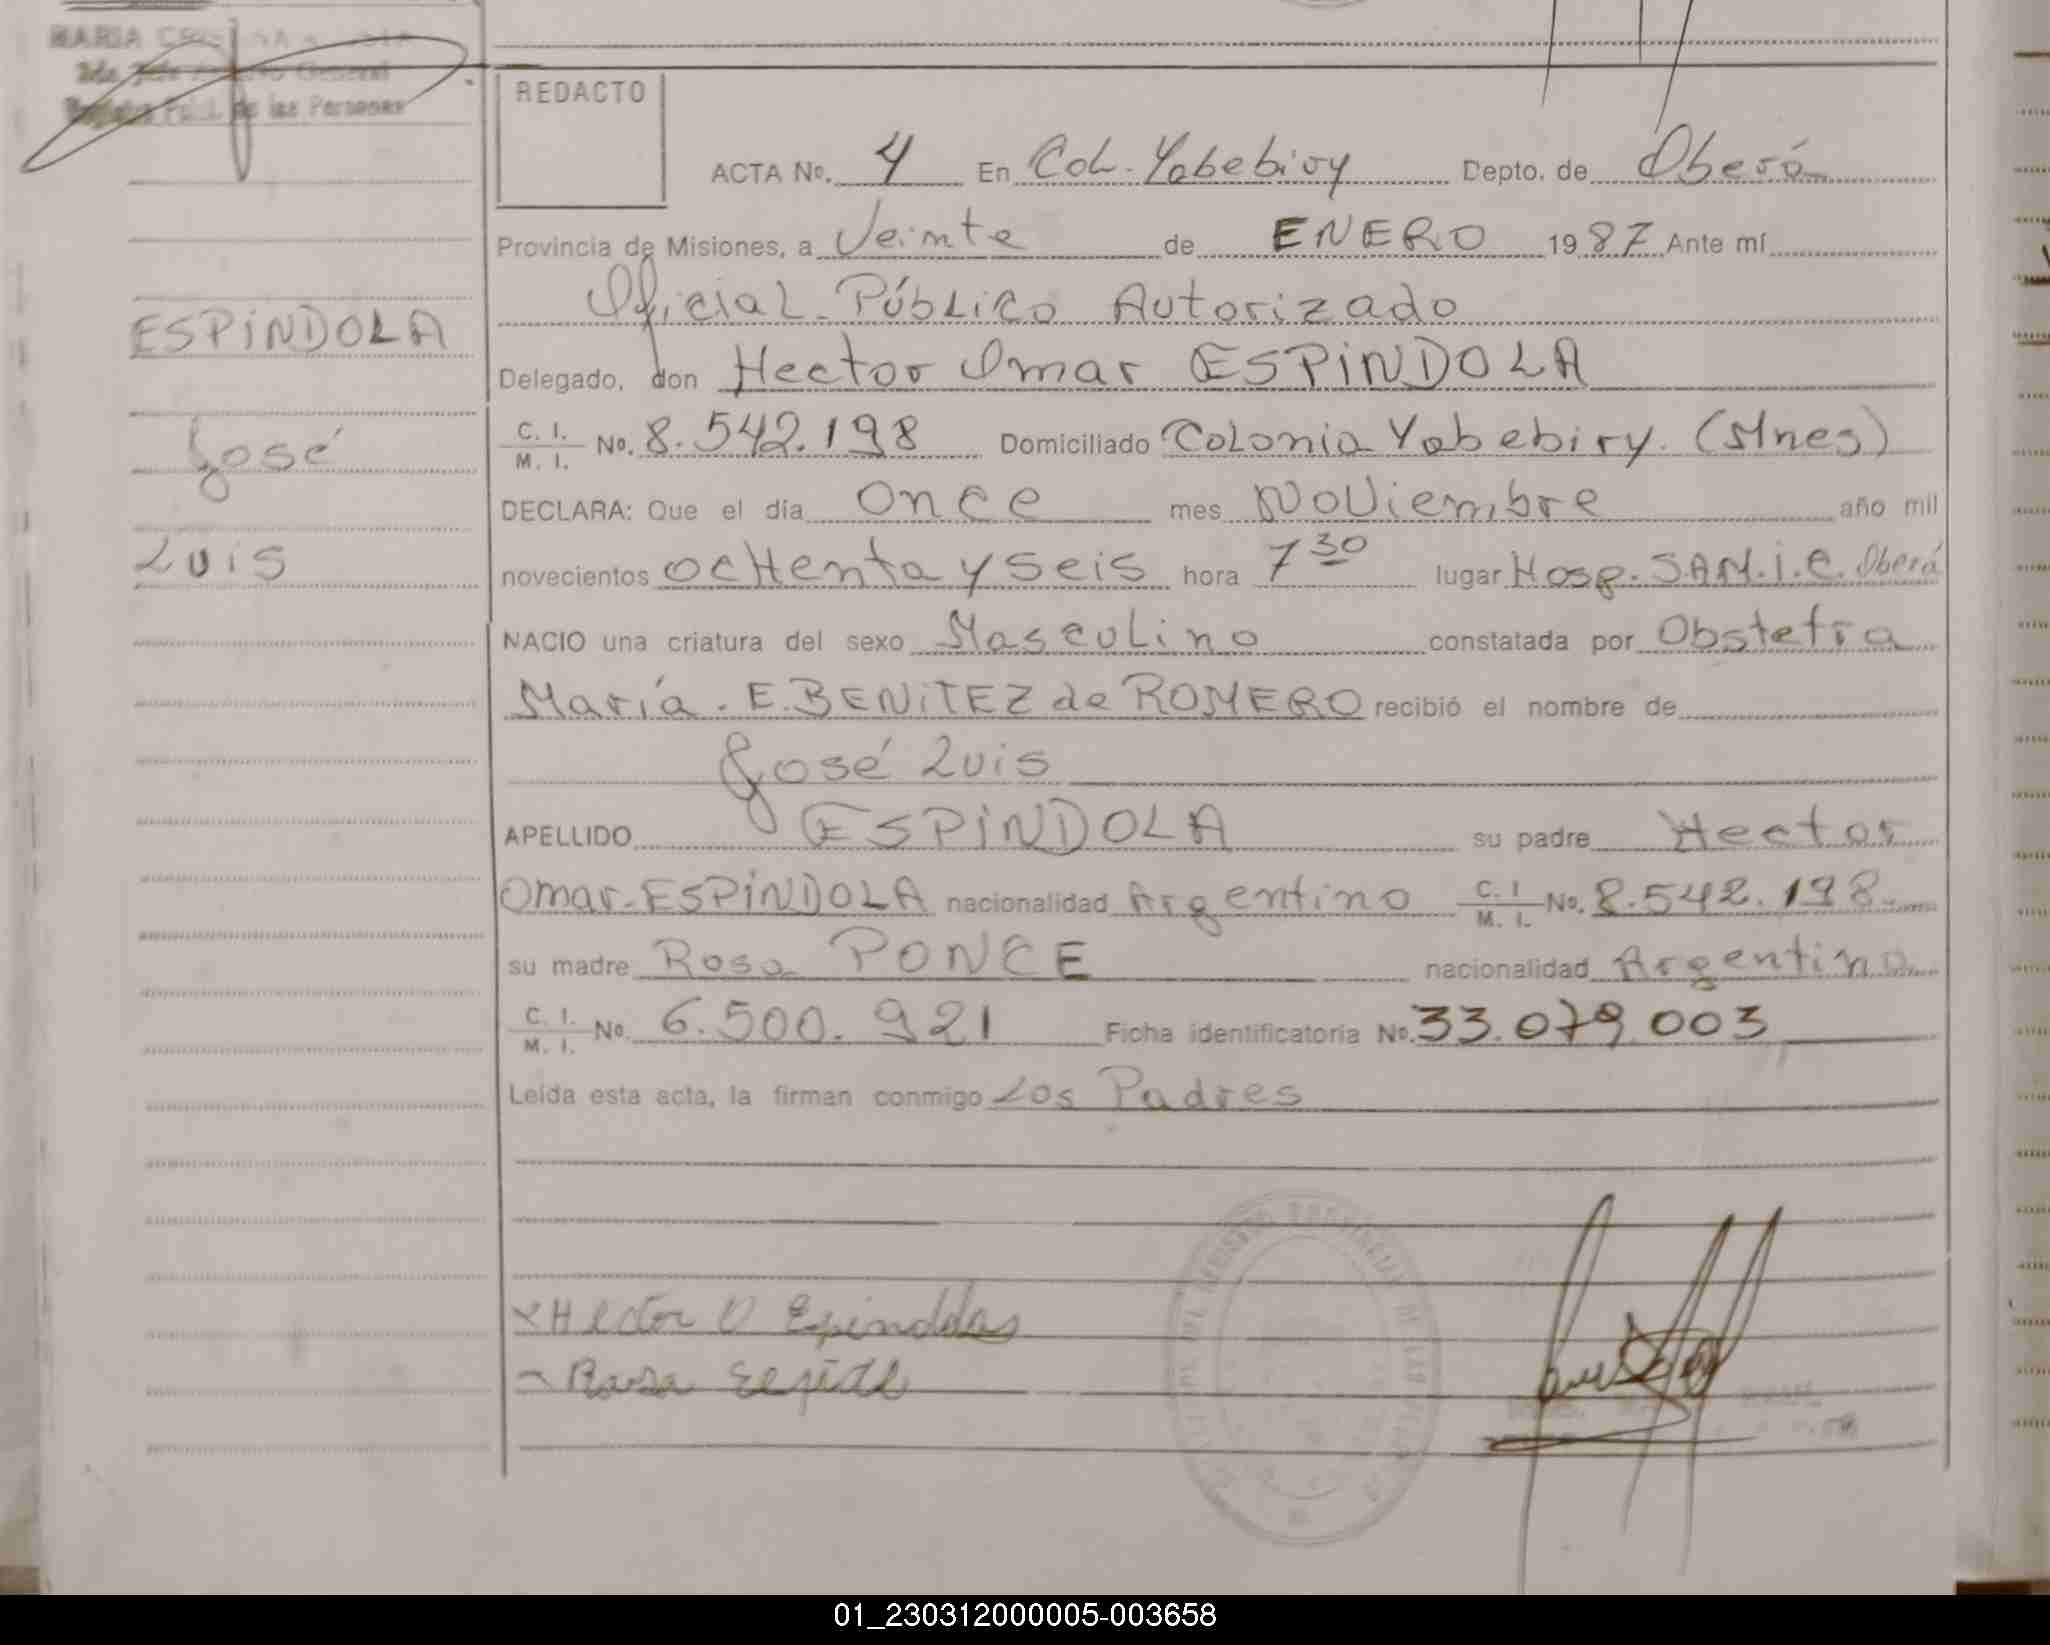 MARIA
General
de las Personas
REDACTO
ACTA No. 4 En Col. Yabebiry Depto. de Oberá
Provincia de Misiones, a Veinte de ENERO 1987 Ante mí
Oficial Público Autorizado
Delegado, don Hector Omar ESPINDOLA
C. I. / M. I. No. 8.542.198 Domiciliado Colonia Yabebiry. (Mnes)
DECLARA: Que el día Once mes Noviembre año mil
novecientos ocHenta y seis hora 7 30 lugar Hosp. S.A.M.i.C. Oberá
NACIO una criatura del sexo Masculino constatada por Obstetra
María. E. BENITEZ de ROMERO recibió el nombre de
José Luis
APELLIDO ESPINDOLA su padre Hector
Omar. ESPINDOLA nacionalidad Argentino C. I / M. I. No. 8.542.198
su madre Rosa PONCE nacionalidad Argentina
C. I. / M. I. No. 6.500.921 Ficha identificatoria No. 33.079.003
Leída esta acta, la firman conmigo Los Padres
ESPINDOLA
José
Luis
Hector O
01_230312000005-003658